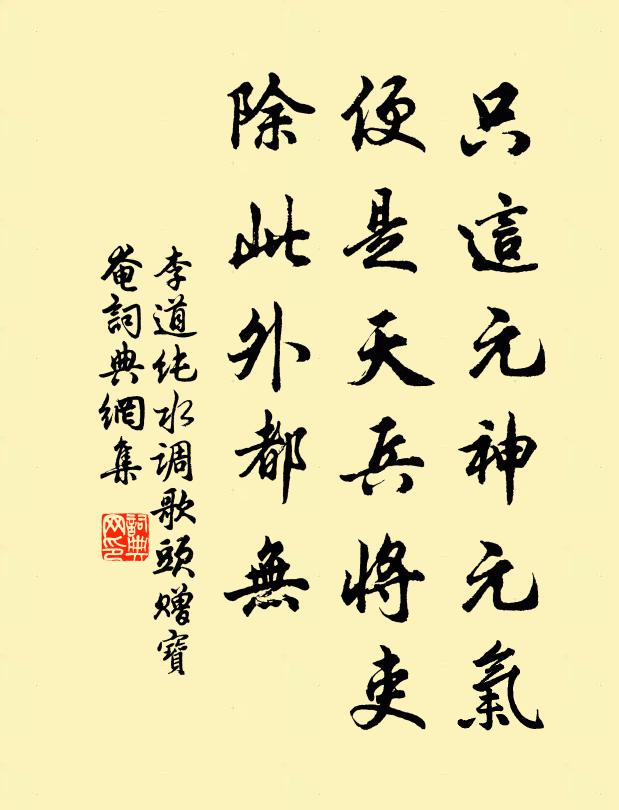 只這元神元氣
便是天兵將吏
除此外都無
李道纯水调歌頭赠寶
奄詞典網集
詞典网印